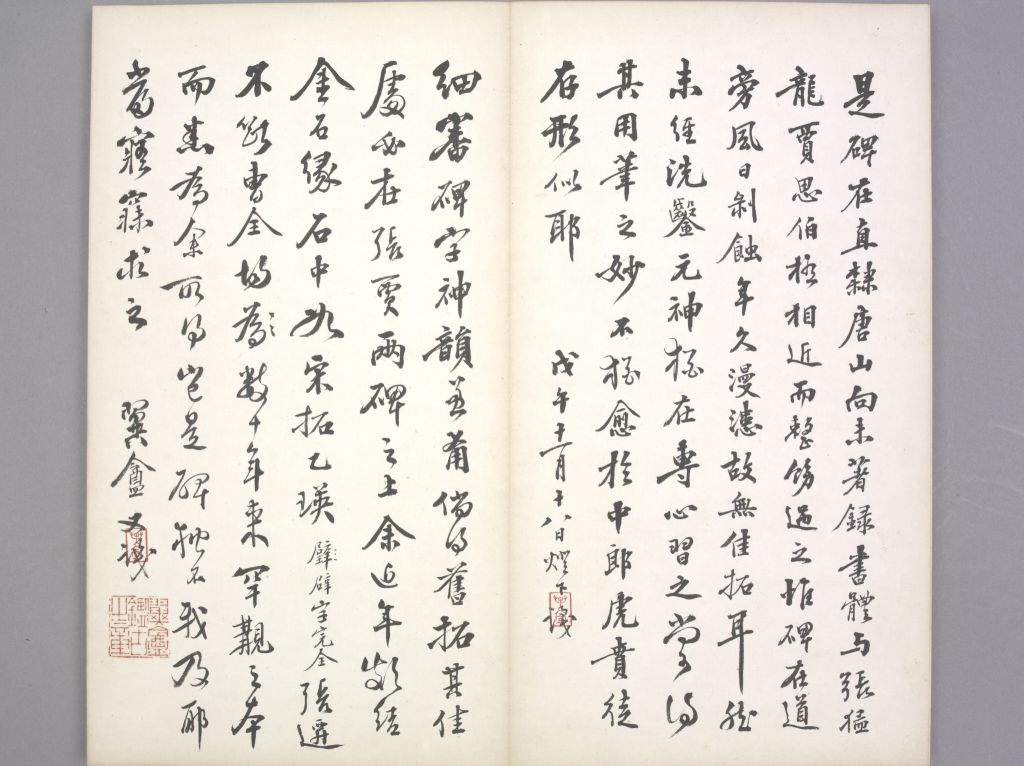 是碑在直隸唐山向未著錄書體与張猛
龍賈思伯極相近而整飭過之惟碑在道
旁風日剝蝕年久漫漶故無佳拓耳然
未經洗鑿元神猶在專心習之當可得
其用筆之妙不猶愈於中郎虎賁徒
存形似耶 戊午十一月十八日燈下
細審碑字神韻並茂倘得舊拓其佳
處必在張賈兩碑之上余近年頗結
金石緣石中如宋拓乙瑛 辟辟字完全 張遷
不 曹全 為數十年來罕覯之本
而悉為余所得豈是碑獨不我及耶
當寤寐求之 翼盦又識